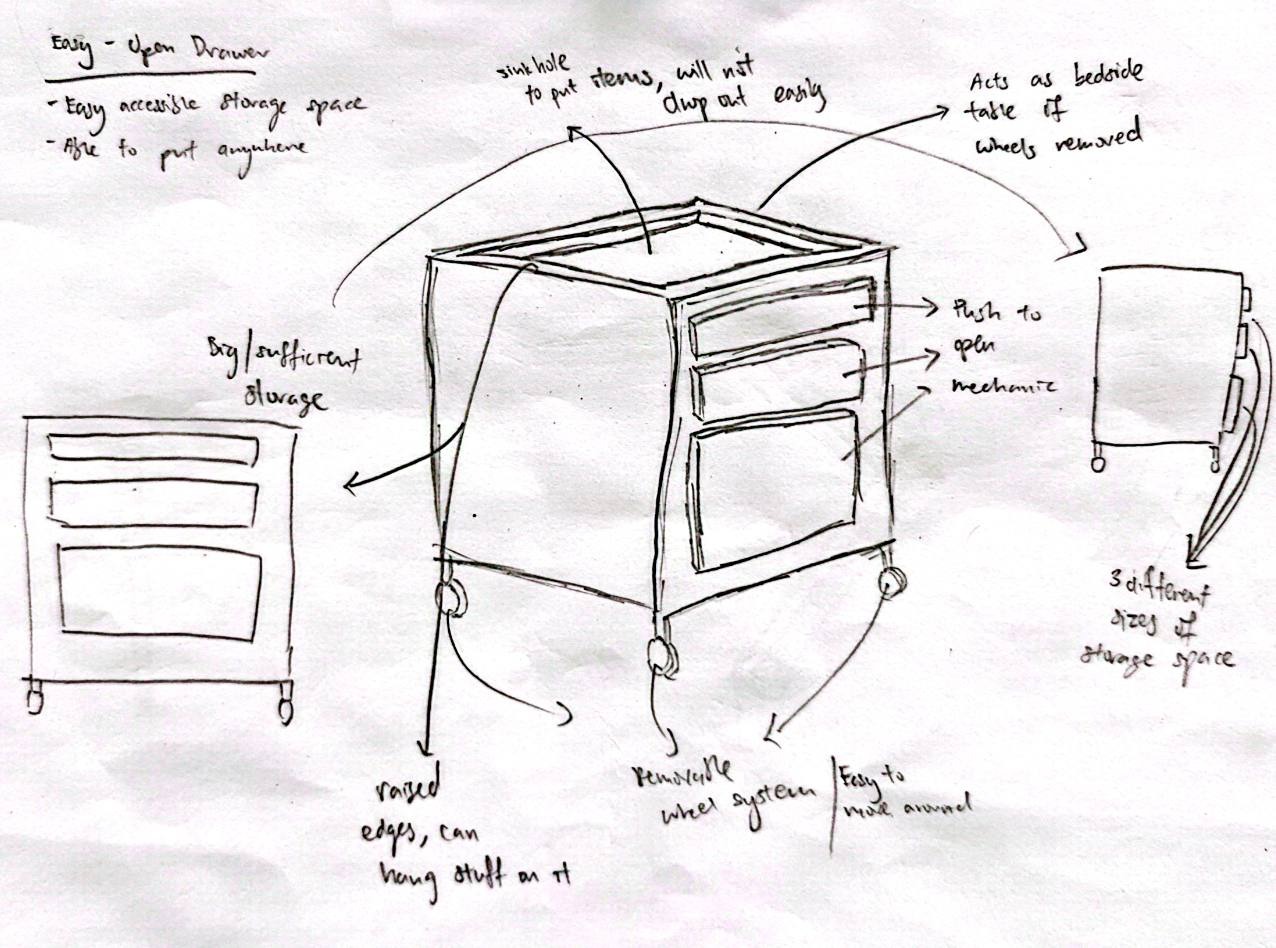 Easy - Open Drawer
- Easy accessible storage space
- Able to put anywhere
sinkhole
to put items, will not
drop out easily
Acts as bedside
table if
wheels removed
Big/sufficient
storage
Push to
open
mechanic
3 different
sizes of
storage space
raised
edges, can
hang stuff on it
removable
wheel system
Easy to
move around